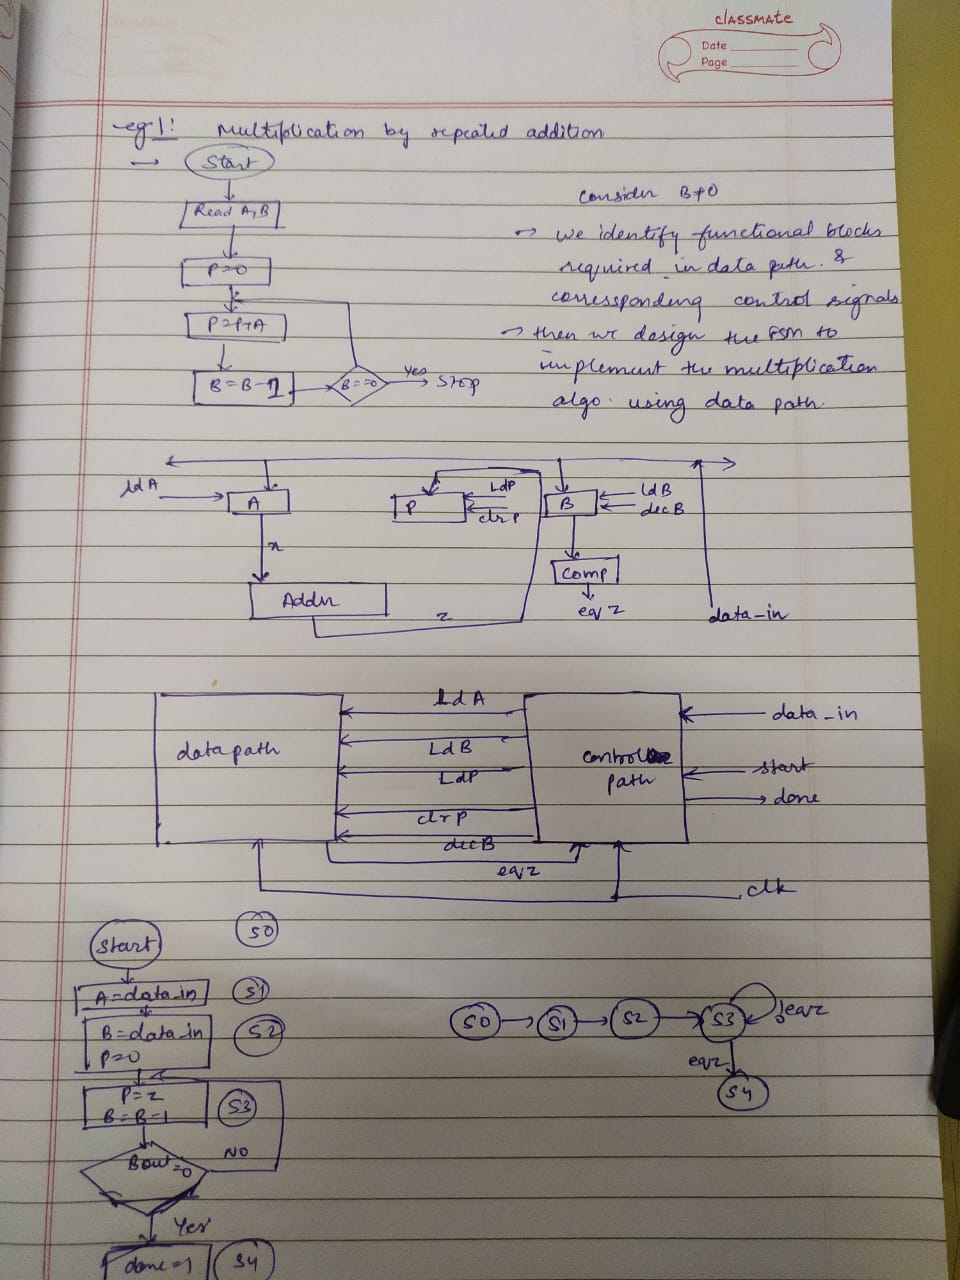 classmate
Date
Page
eg 1: Multiplication by repeated addition
→ Start
Read A, B
P=0
P=P+A
B=B-1
B==0
Yes
Stop
Consider B≠0
→ we identify functional blocks
required in data path &
corressponding control signals
→ then we design the FSM to
implement the multiplication
algo. using data path.
ldA
A
P
LdP
clrP
B
ldB
decB
x
Comp
Adder
z
eqz
data_in
datapath
LdA
LdB
LdP
clrP
decB
eqz
control
path
data_in
start
done
clk
Start
S0
A=data_in
S1
B=data_in
P=0
S2
P=z
B=B-1
S3
Bout=0
NO
Yes
done=1
S4
S0
S1
S2
S3
!eqz
eqz
S4